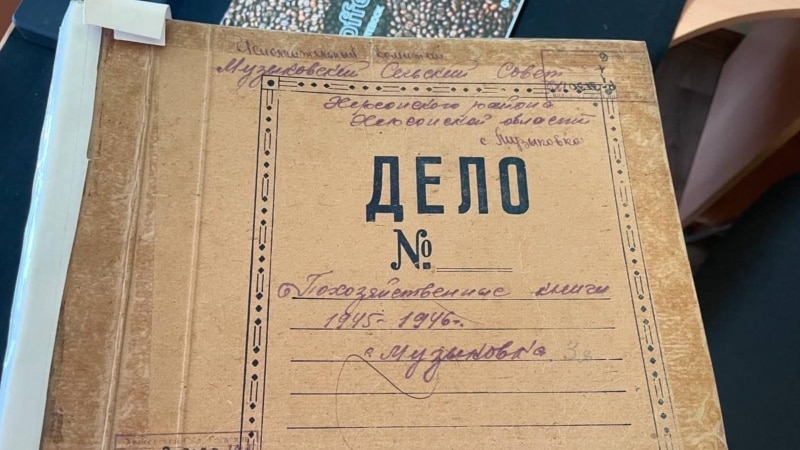 Исполнительный комитет
Музыковский Сельский Совет
Херсонского района
Херсонской области
с. Музыковка
ДЕЛО
№
Похозяйственные книги
1945-1946г.
с. Музыковка